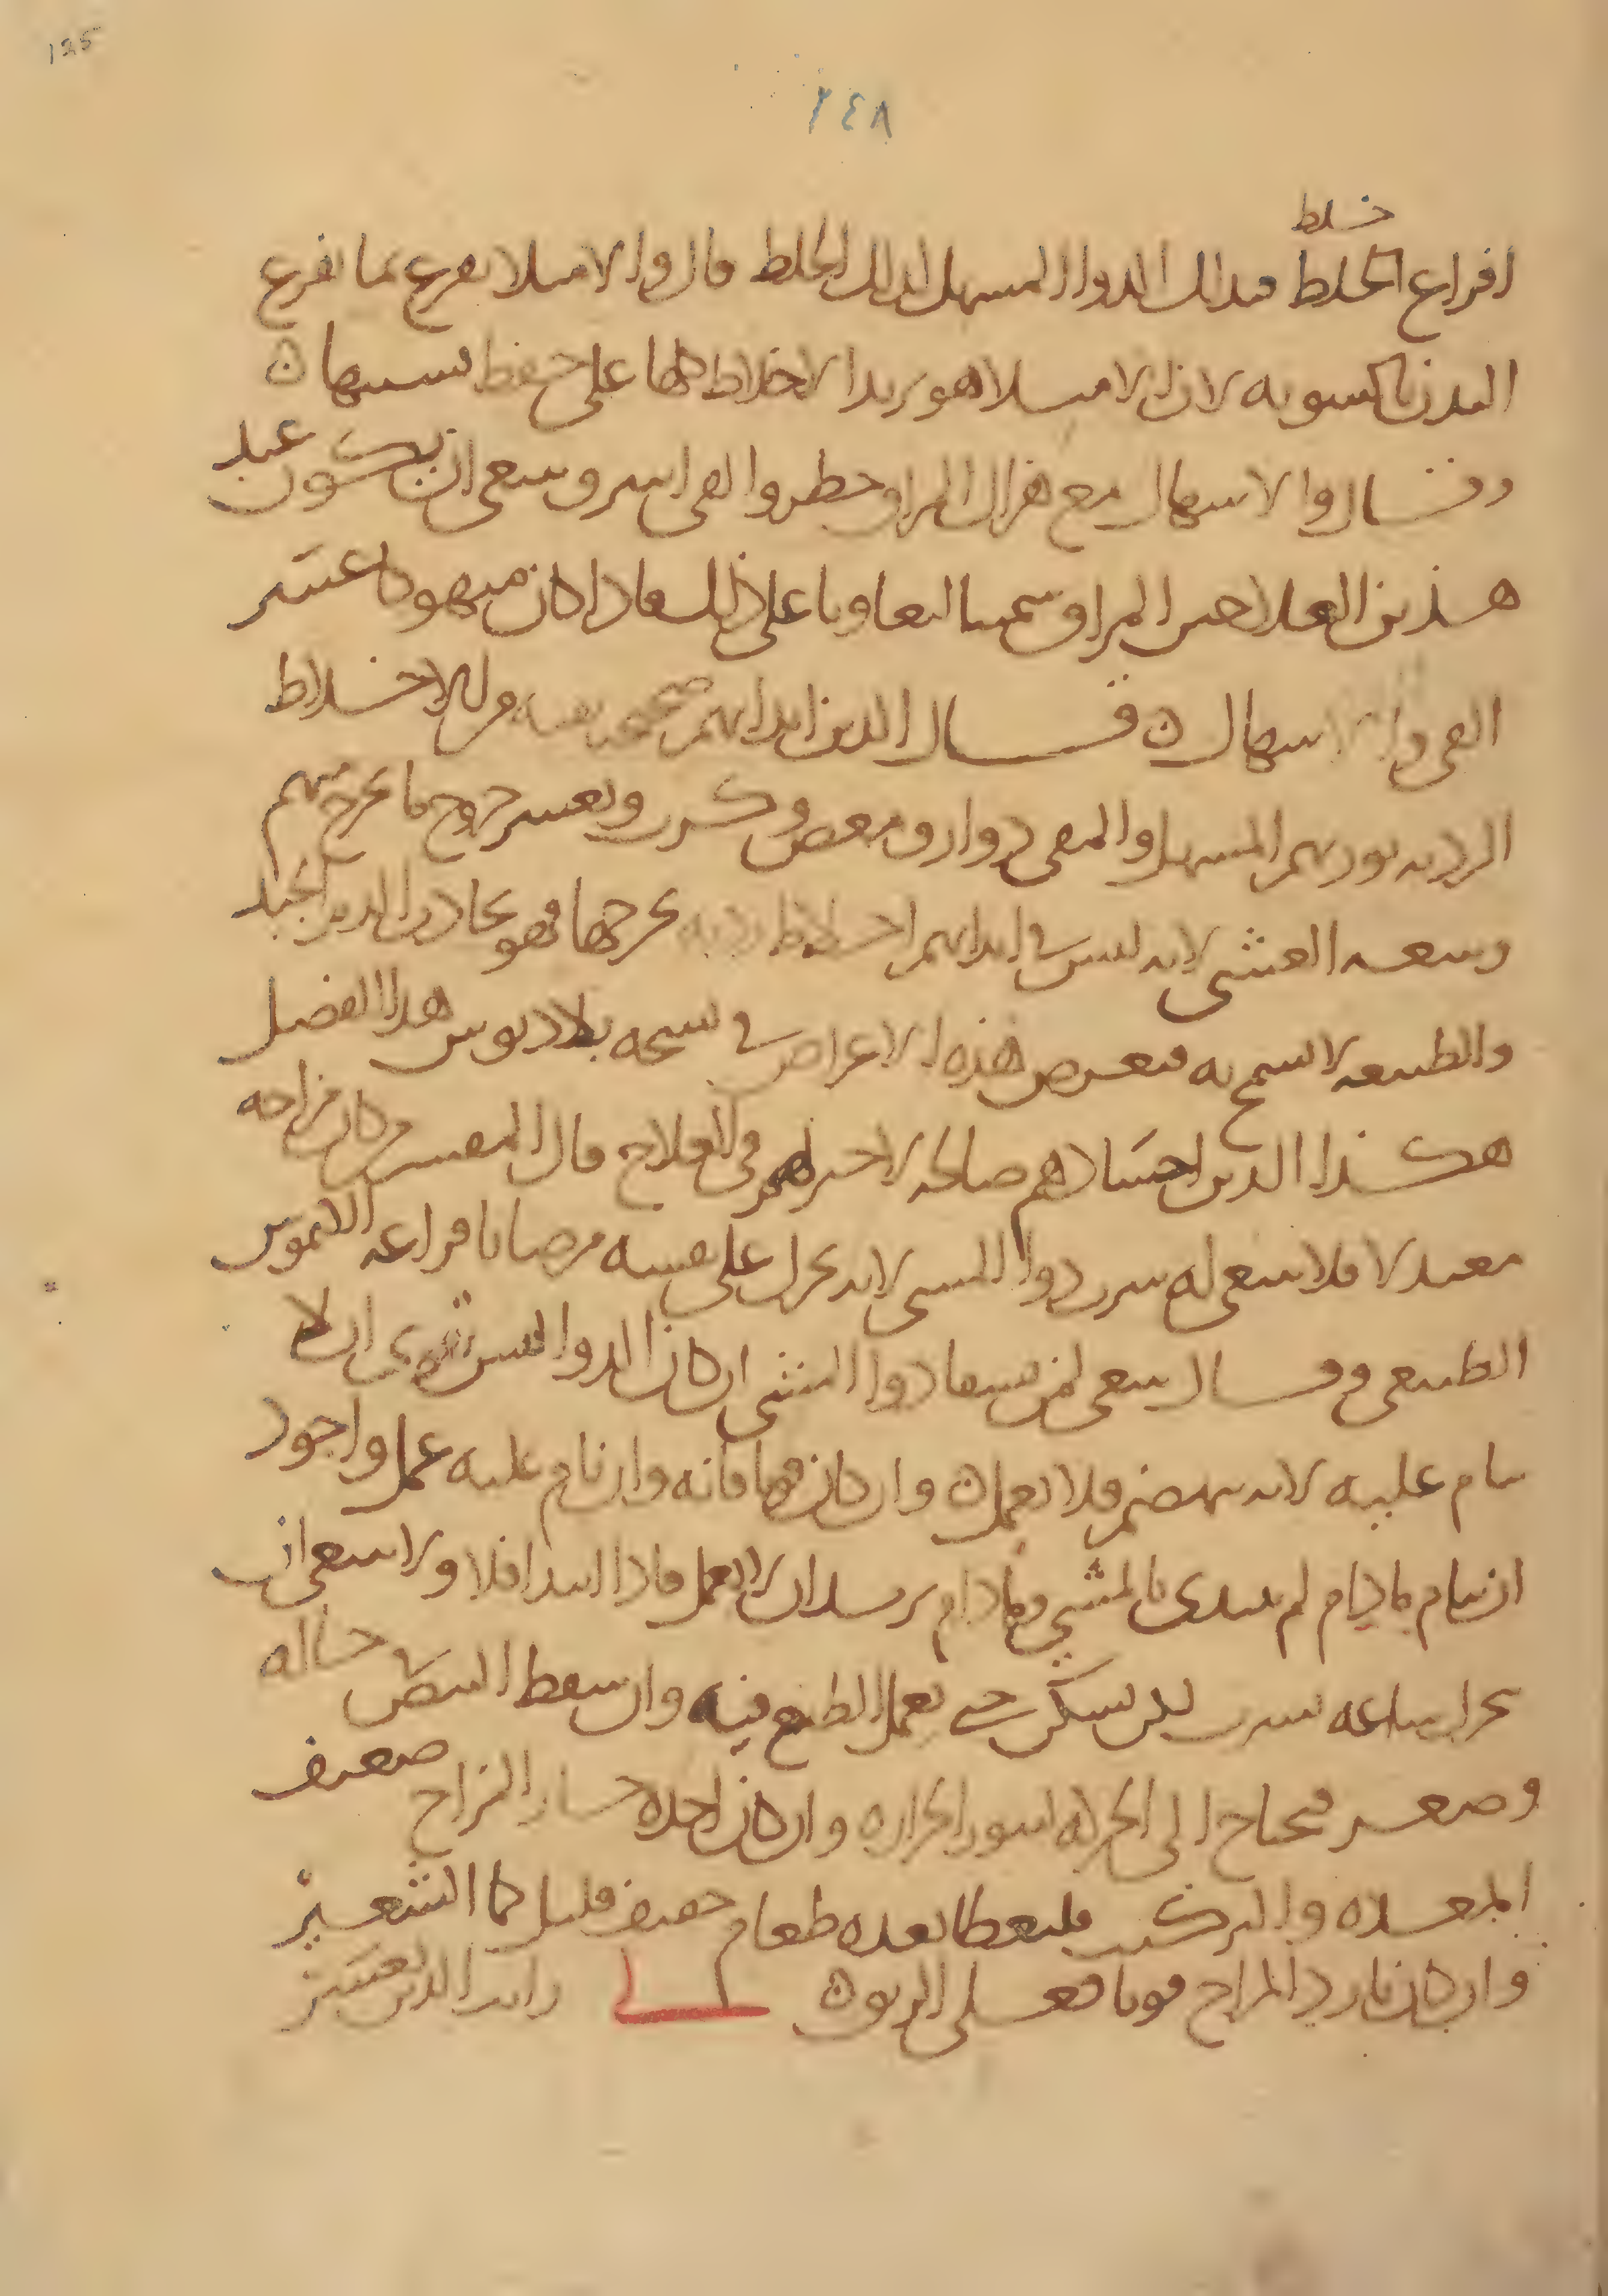 125
٢٤٨
خلط
افراغ الخلط فبذلك الدوا المسهل لذلك الخلط قال والامتلا يفرغ بما يفرغ
البدن بالسويه لان الامتلا هو تزيد الاخلاط كلها على حفظ نسبتها ن
وقال والاسهال مع هزال المراق خطر والقى ايسر وينبغى ان يكون عند
هذين العلاجين المراق سمينا ليعاونا على ذلك فاذا كان منهوكا عسر
القى والاسهال ن قال الذين ابدانهم صحيحه من الاخلاط
الرديه يورثهم المسهل والمقى دوار ومغص وكرب ويعسر خروج ما يخرج منهم
ويتبعه الغشى لانه ليس فى ابدانهم اخلاط رديه يخرجها فهو يجاذب الدم الجيد
والطبيعه لا تسمح به فتعرض هذه الاعراض فى نسخه بلاديوس هذا الفصل
هكذا الذين احشاوهم صالحه لاخير لهم فى العلاج قال المفسر من كان مزاجه
معتدلا فلا ينبغى له شرب دوا المشى لانه يحرك على نفسه مرضا بافراغه الكيموس
الطبيعى وقال ينبغى لمن يسقا دوا المشى ان كان الدوا ليس بقوى ان لا
ينام عليه لانه ينهضم فلا يعمل ن وان كان قويا فانه وان نام عليه عمل واجود
ان ينام مادام لم يبتدى بالمشى ومادام يريد ان لا يعمل فاذا ابتدا فلا ولا ينبغى ان
يتحرك ساعه يشرب لكن يسكن حتى يعمل الطبع فيه وان سقط النبض حاله
وصغر فيحتاج الى الحركه لتثور الحراره وان كان اخذه حار المزاج ضعيف
المعده والتركيب فليعطا بعده طعام خفيف قليل كما الشعير
وان كان بارد المزاج قويا فعسلى الزيتون لى رايت الذين يعسر